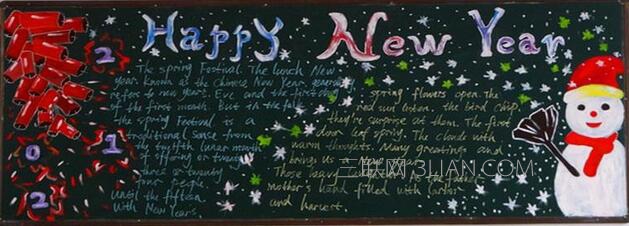 Happy New Year
2
0
1
2
The spring Festival. The lunch New
year. known as the Chinese New Year
refers to new year's Eve and the first day
of the first month. But in the folk
the spring Festival is a
traditional sense from
the twelfth lunar month
of offering or twenty
three or twenty
four people.
Until the fifteen
With New Year's
spring flowers open. The
red sun listen. the bird chip
they're surprise at them. The first
door leaf spring. The clouds with
warm thoughts. Many greetings and
brings us
Those heavy the father
mother's hand filled with
and harvest.
三联网 3LIAN.COM